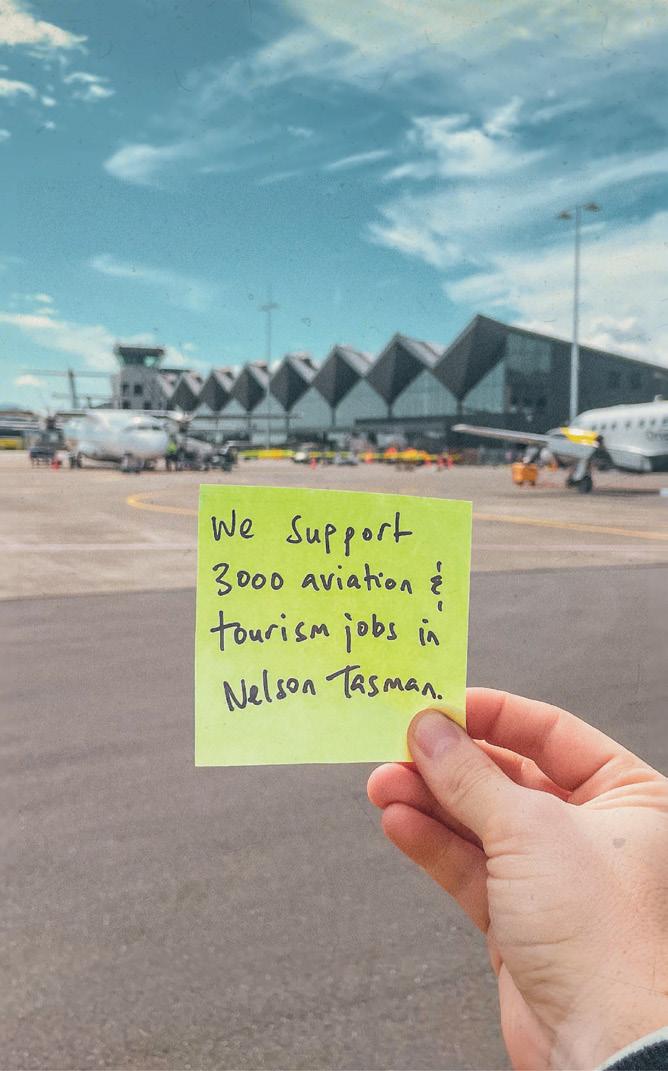 We support
3000 aviation &
tourism jobs in
Nelson Tasman.